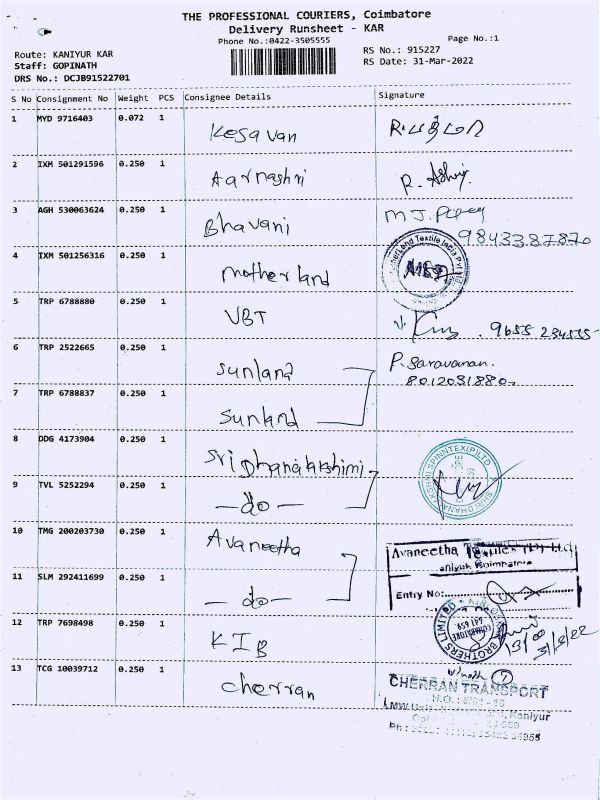 THE PROFESSIONAL COURIERS, Coimbatore
Delivery Runsheet - KAR
Phone No.:0422-3505555
Page No.:1
Route: KANIYUR KAR
Staff: GOPINATH
DRS No.: DCJB91522701
RS No.: 915227
RS Date: 31-Mar-2022
S No Consignment No Weight PCS Consignee Details Signature
1 MYD 9716403 0.072 1 Kesavan
2 IXM 501291596 0.250 1 Aarnashri R. Ashvij
3 AGH 530063624 0.250 1 Bhavani M J.
9843387870
4 IXM 501256316 0.250 1 motherland
5 TRP 6788880 0.250 1 VBT 9655 234535
6 TRP 2522665 0.250 1 sunland P. Saravanan.
8012031880
7 TRP 6788837 0.250 1 Sunland
8 DDG 4173904 0.250 1 Sri Dhanalakshimi
9 TVL 5252294 0.250 1 — do —
10 TMG 200203730 0.250 1 Avaneetha
Avaneetha Textiles (P) Ltd
11 SLM 292411699 0.250 1 — do —
Entry No:
12 TRP 7698498 0.250 1 KIB
BROTHERS LIMITED
COIMBATORE
641 659
13:00
31/3/22
13 TCG 10039712 0.250 1 cherran
CHERRAN TRANSPORT
Kaniyur